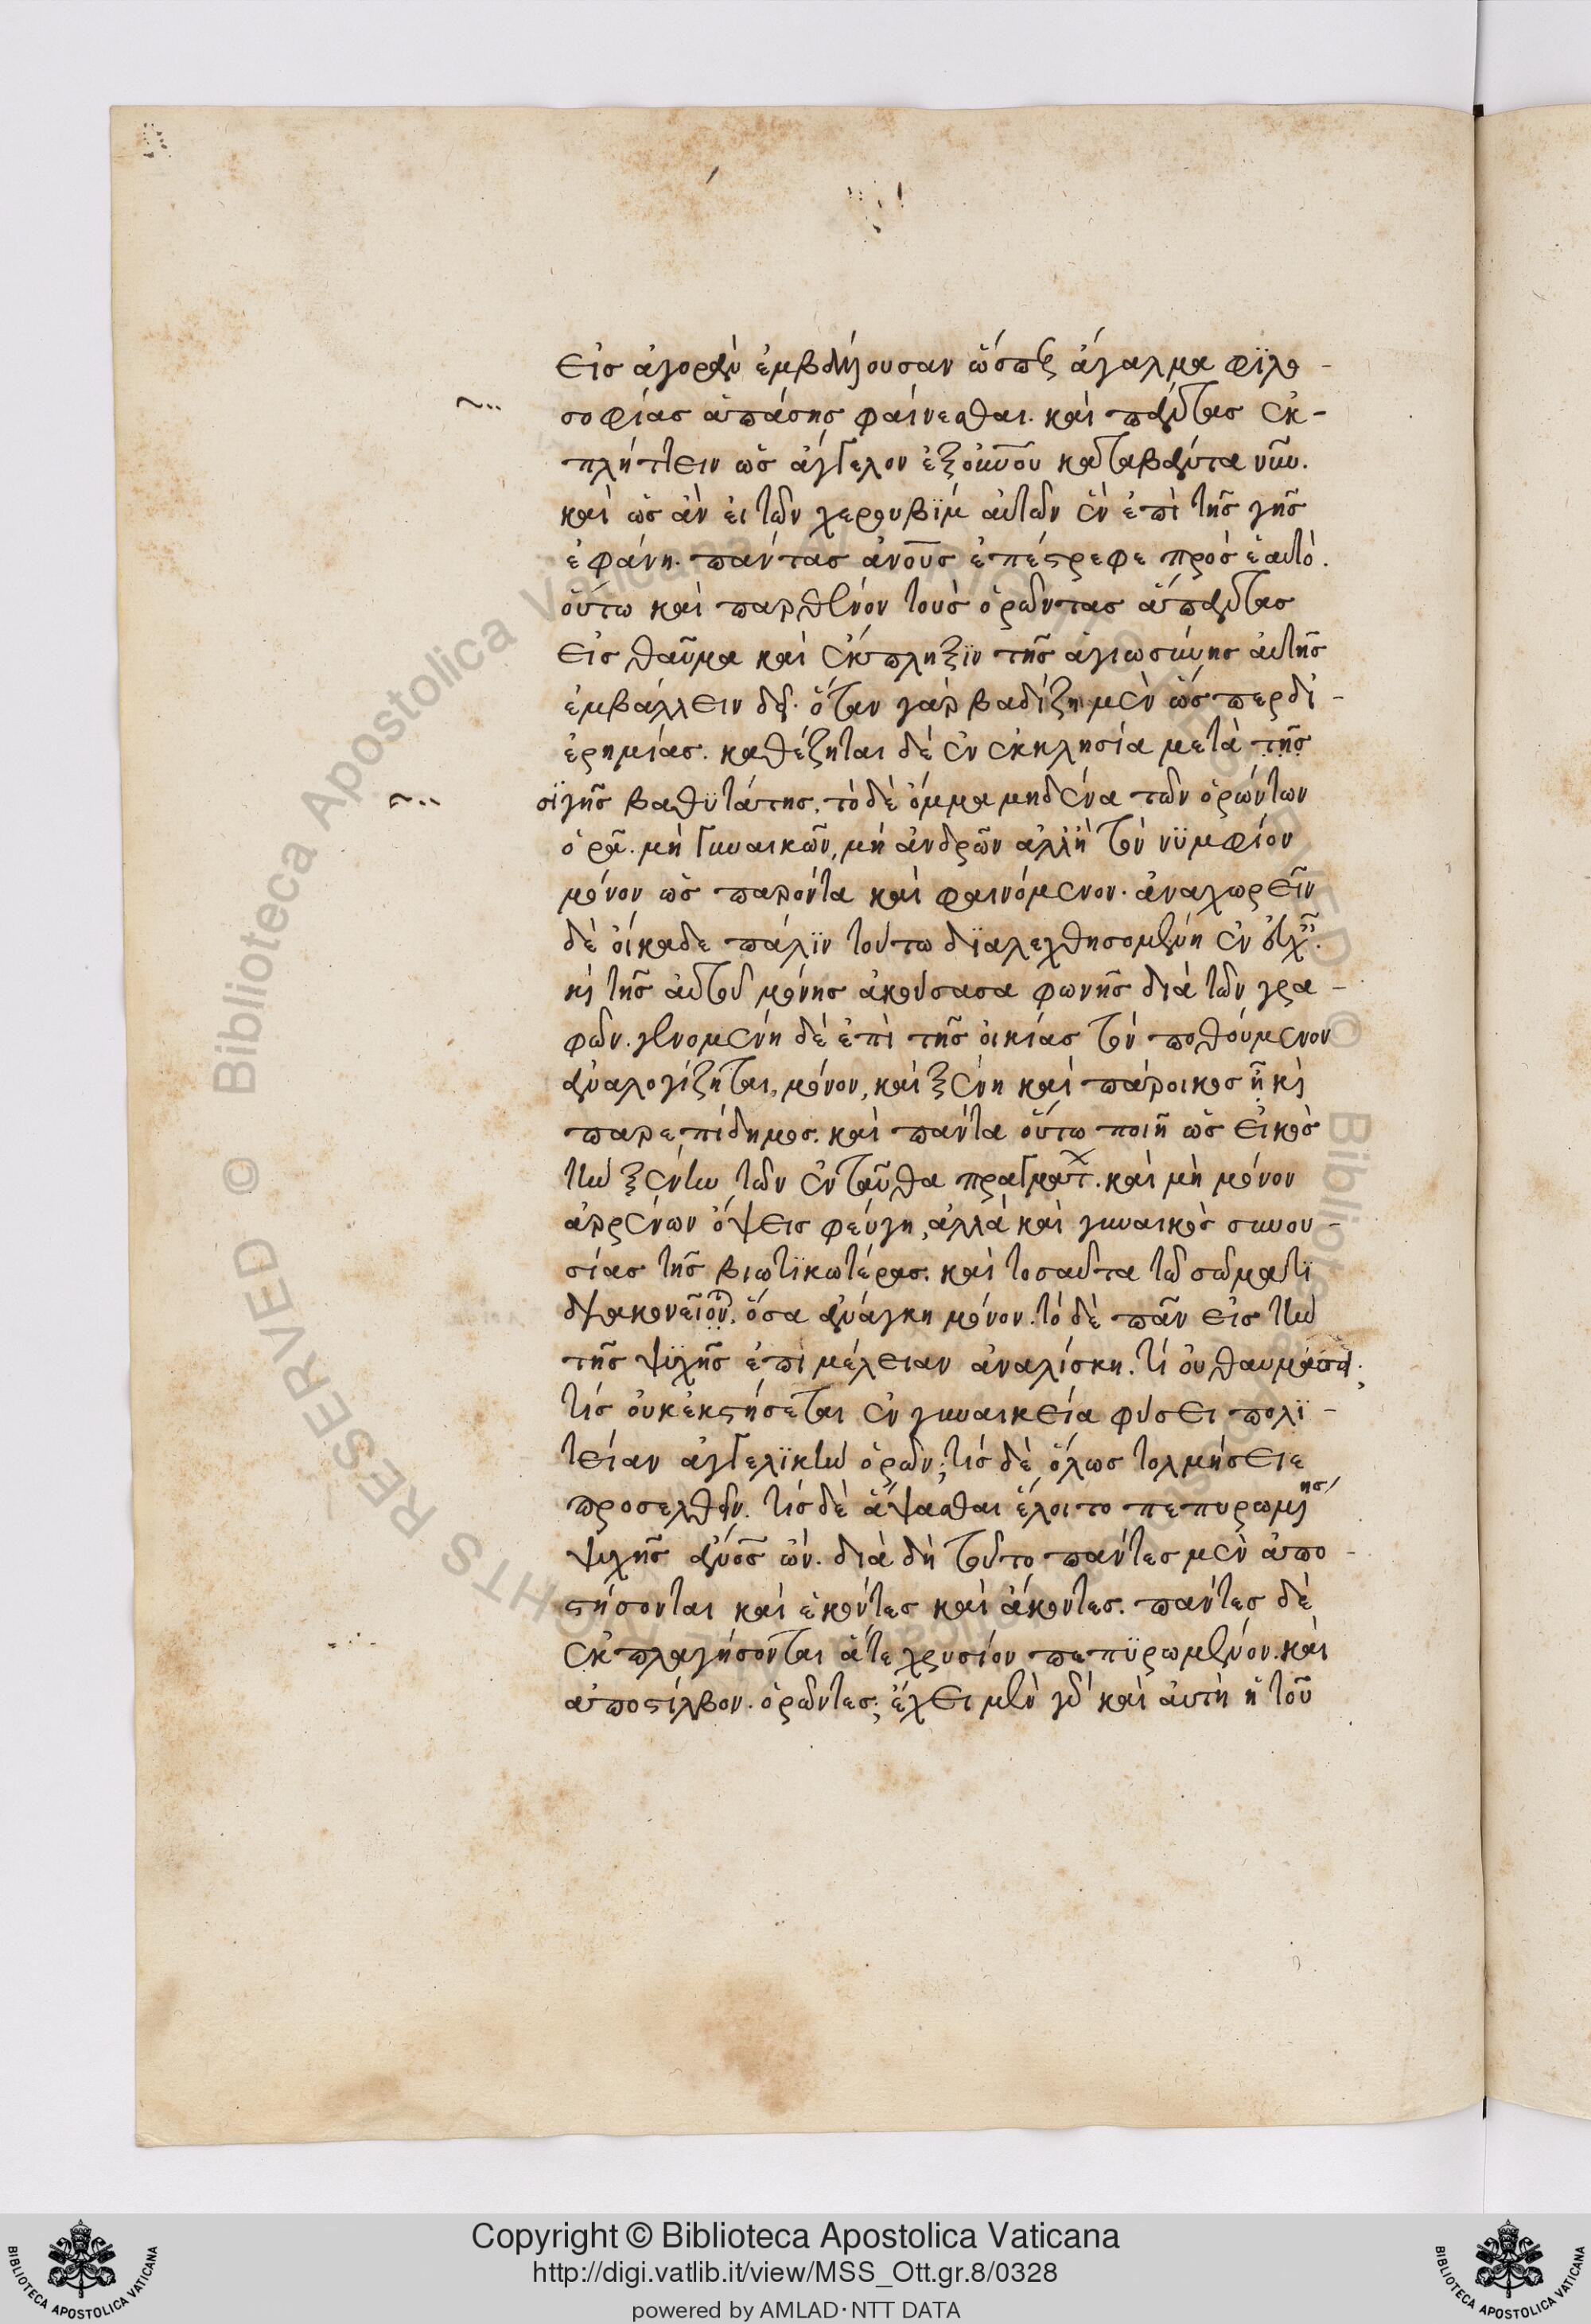 εἰς ἀγορὰν ἐμβάλλουσαν ὥσπερ ἄγαλμα φϊλο-
σοφίας ἁπάσης φαίνεσθαι. καὶ πάντας ἐκ-
πλήττειν ὡς ἄγγελον ἐξ οὐνοῦ καταβάντα νῦν.
καὶ ὡς ἂν εἰ τῶν χερουβϊμ αὐτῶν ἓν ἐπὶ τῆς γῆς
ἐφάνη. πάντας ἀνους ἐπέστρεφε πρὸς ἑαυτό.
οὕτω καὶ παρθένον τοὺς ὁρῶντας ἅπαντας
εἰς θαῦμα καὶ ἔκπληξϊν τῆς ἁγιωσύνης αὐτῆς
ἐμβάλλειν δεῖ. ὅταν γὰρ βαδίζη μὲν ὥσπερ δι-
ἐρημίας. καθέζηται δὲ ἐν ἐκκλησία μετὰ τῆς
σϊγῆς βαθϋτάτης. τὸ δὲ ὄμμα μηδένα τῶν ὁρώντων
ὁρᾶ. μὴ γυναικῶν, μὴ ἀνδρῶν ἀλλ' ἢ τὸν νϋμφίον
μόνον ὡς παρόντα καὶ φαινόμενον. ἀναχωρεῖν
δὲ οἴκαδε πάλϊν τούτω δϊαλεχθησομένη ἐν
κὶ τῆς αὐτοῦ μόνης ἀκούσασα φωνῆς διὰ τῶν γρα-
φῶν. γενομένη δὲ ἐπὶ τῆς οἰκίας τὸν ποθούμενον
ἀναλογίζηται, μόνον, καὶ ξένη καὶ πάροικος ἦ κὶ
παρεπίδημος. καὶ πάντα οὕτω ποιῆ ὡς εἰκὸς
τὴν ξένην τῶν ἐνταῦθα πραγματ. καὶ μὴ μόνον
ἀρρένων ὄψεις φεύγη, ἀλλὰ καὶ γυναικὸς συνου-
σίας τῆς βιωτϊκωτέρας. καὶ τοσαῦτα τῶ σώματϊ
ὅσα ἀνάγκη μόνον. τὸ δὲ πᾶν εἰς τὴν
τῆς ψϋχῆς ἐπιμέλειαν ἀναλίσκη. τί οὐ θαυμάσει;
τίς οὐκ ἐκστήσεται ἐν γυναικεία φύσει πολϊ-
τείαν ἀγγελϊκὴν ὁρῶν; τίς δὲ ὅλως τολμήσειε
προσελθεῖν. τίς δὲ ἅψασθαι ἕλοιτο πεπυρωμένης
ψυχῆς ἀνος ὤν. διὰ δὴ τοῦτο πάντες μὲν ἀπο-
στήσονται καὶ ἑκόντες καὶ ἄκοντες. πάντες δὲ
ἐκπλαγήσονται ἅτε χρυσίον πεπϋρωμένον. καὶ
ἀποστίλβον. ὁρῶντες; ἔχει μὲν γὰρ καὶ αὐτὴ ἡ τοῦ
Copyright © Biblioteca Apostolica Vaticana
http://digi.vatlib.it/view/MSS_Ott.gr.8/0328
powered by AMLAD·NTT DATA